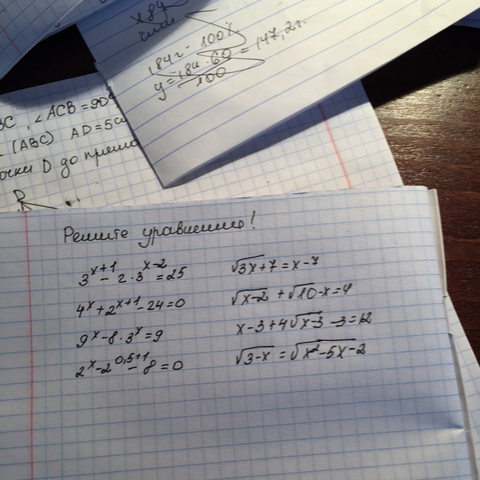 184г - 100%
y = 184 · 60 / 100 = 147,2г.
BC, ∠ACB = 90°
(ABC) AD = 5
D до
D
Решите уравнения!
3^{x+1} - 2·3^{x-2} = 25
4^x + 2^{x+1} - 24 = 0
9^x - 8·3^x = 9
2^x - 2^{0,5+1} - 8 = 0
√3x+7 = x-7
√x-2 + √10-x = 4
x-3+4√x-3 -3=12
√3-x = √x²-5x-2